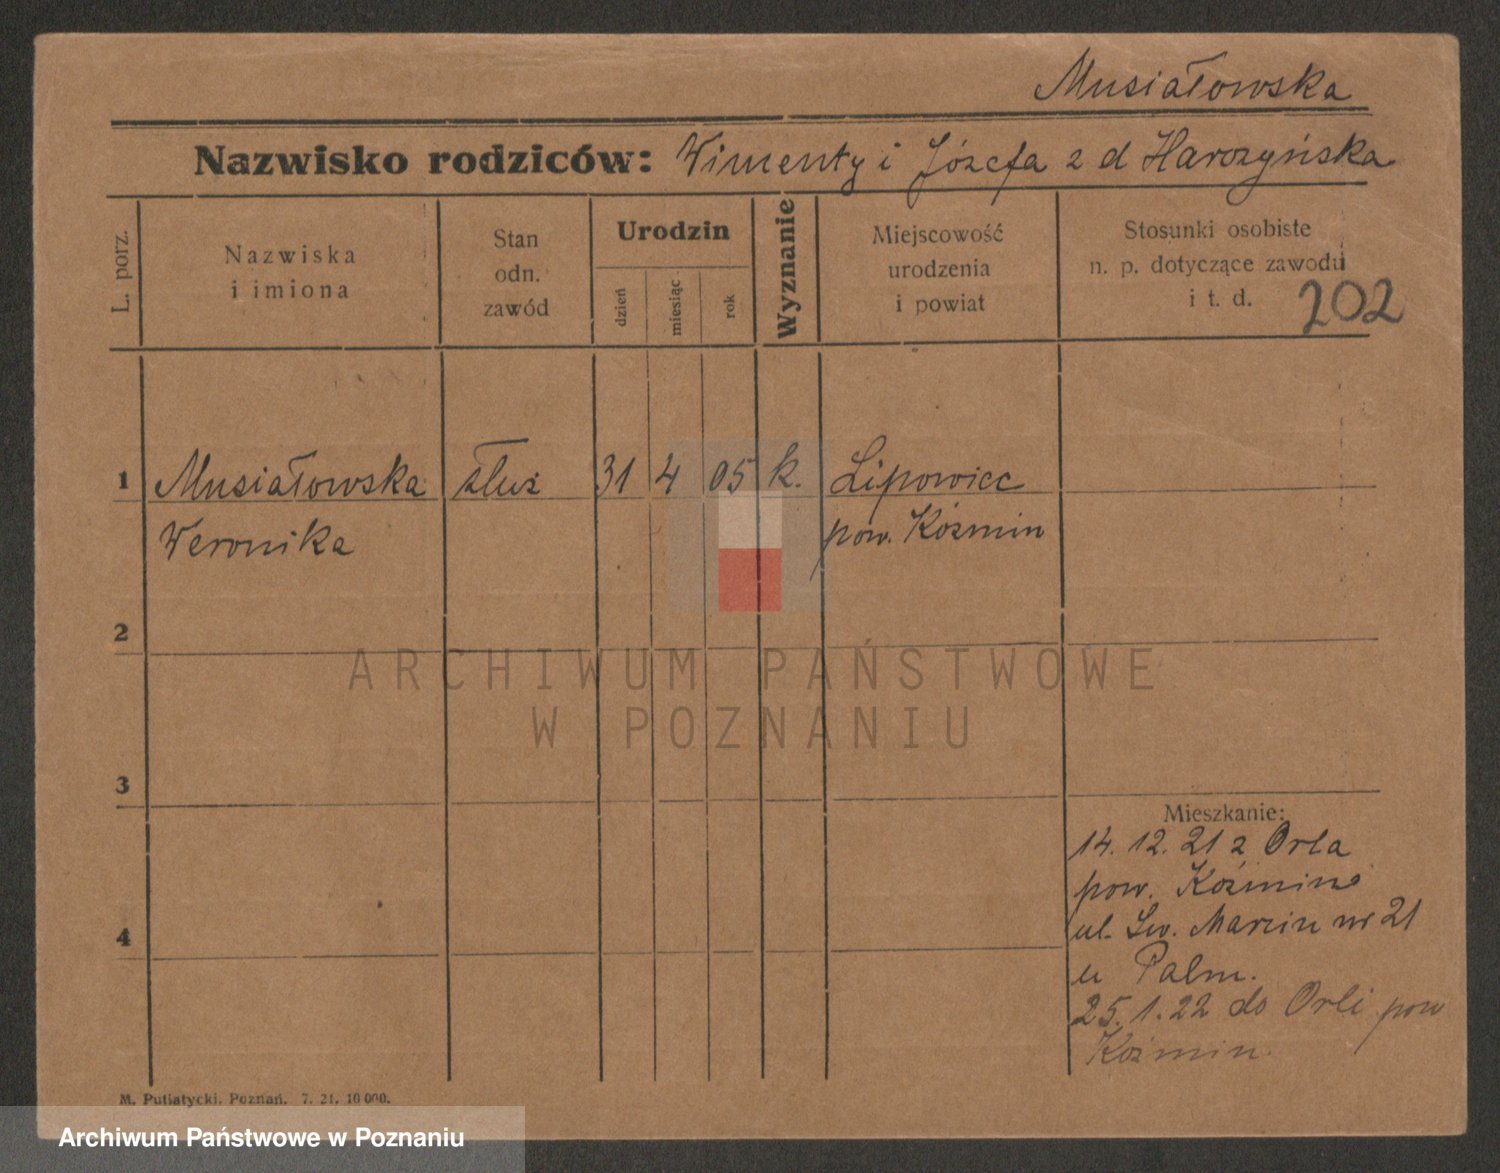 Musiałowska
Nazwisko rodziców: Wincenty i Józefa z d Harozyńska
L. porz.
Nazwiska
i imiona
Stan
odn.
zawód
Urodzin
dzień
miesiąc
rok
Wyznanie
Miejscowość
urodzenia
i powiat
Stosunki osobiste
n. p. dotyczące zawodu
i t. d.
202
1 Musiałowska służ 31 4 05 k. Lipowiec
Weronika pow. Koźmin
2
ARCHIWUM PAŃSTWOWE
W POZNANIU
3
Mieszkanie:
14. 12. 21 z Orla
pow. Koźmin
4
ul. Św. Marcin nr 21
u Palm.
25. 1. 22 do Orli pow
Koźmin.
M. Putiatycki, Poznań. 7. 21. 10 000.
Archiwum Państwowe w Poznaniu